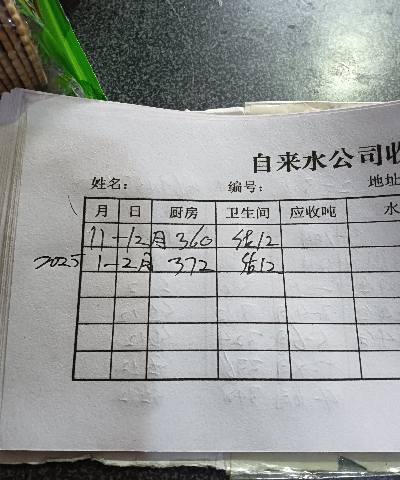 自来水公司收
姓名： 编号： 地址
月 日 厨房 卫生间 应收吨 水
11-12月 360 估12
2025 1-2月 372 估12